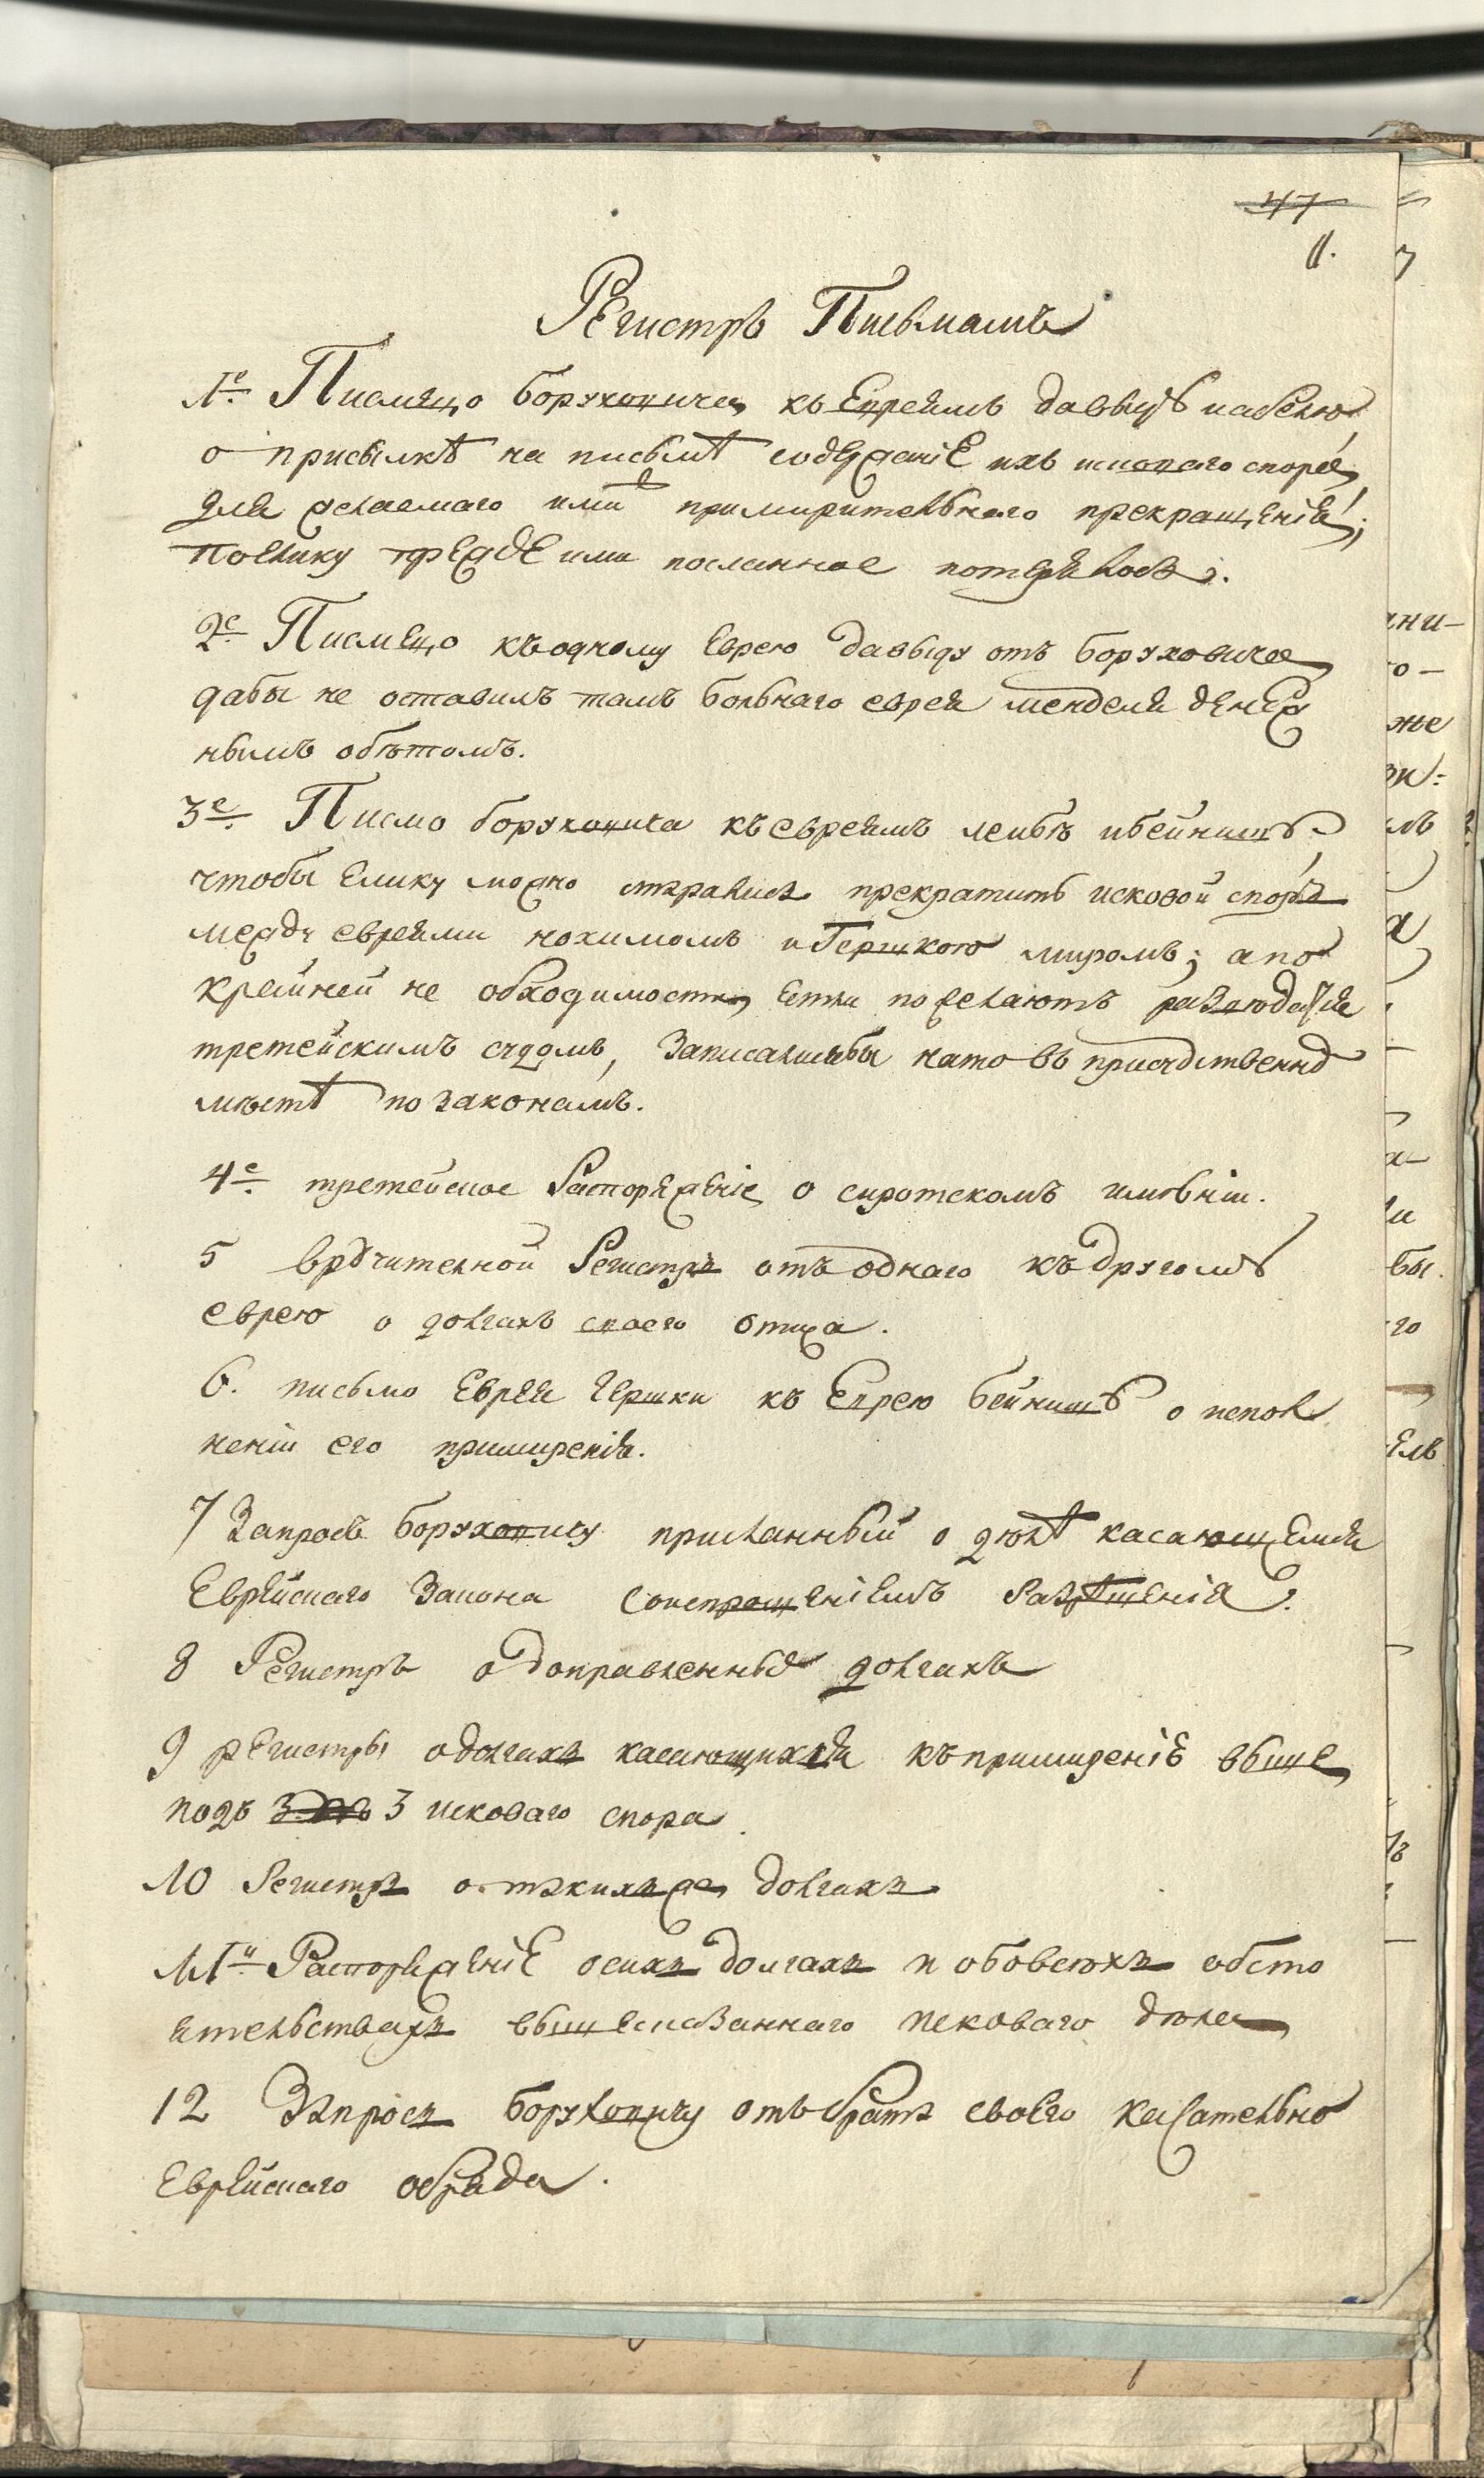 47
11.
Регистръ Письмамъ
1е. Писмецо боруховича къ Евреямъ давыду
о присылкѣ на письмѣ содержаніе ихъ исковаго спора,
для желаемаго ими примирительнаго прекращенія;
поелику прежде ими посланное потерялось.
2е. Писмецо къ одному Еврею давыду отъ боруховича
дабы не оставилъ тамъ больнаго еврея менделя денеж
нымъ обѣтомъ.
3е. Писмо боруховича къ евреямъ леибѣ и бейнишу
чтобы елику можно старались прекратить исковой споръ
между евреями нохимомъ и Гершкою миромъ; а по
крайней не обходимости, естли пожелаютъ
третейскимъ судомъ, записалисьбы на то въ присудственно
мѣстѣ по законамъ.
4е. третейское Распоряженіе о сиротскомъ имѣніи.
5 вручителной Регистръ отъ однаго къ другому
еврею о долгахъ своего отца.
6. письмо Еврея Гершки къ Еврею бейнишу о испол
неніи его примиренія.
7 Запросъ боруховичу присланный о дѣлѣ касающемся
Еврейскаго Закона со испрошеніемъ Разрѣшенія.
8 Регистръ о доправленны долгахъ
9 регистры о долгахъ касающихся къ примиренію выше
подъ 3 исковаго спора
10 Регистръ о такихъ же долгахъ
11й Распоряженіе о сихъ долгахъ и обо всехъ обсто
ятельствахъ вышесказаннаго исковаго дѣла
12 Запросъ боруховичу отъ брата своего касательно
Еврейскаго обряда.